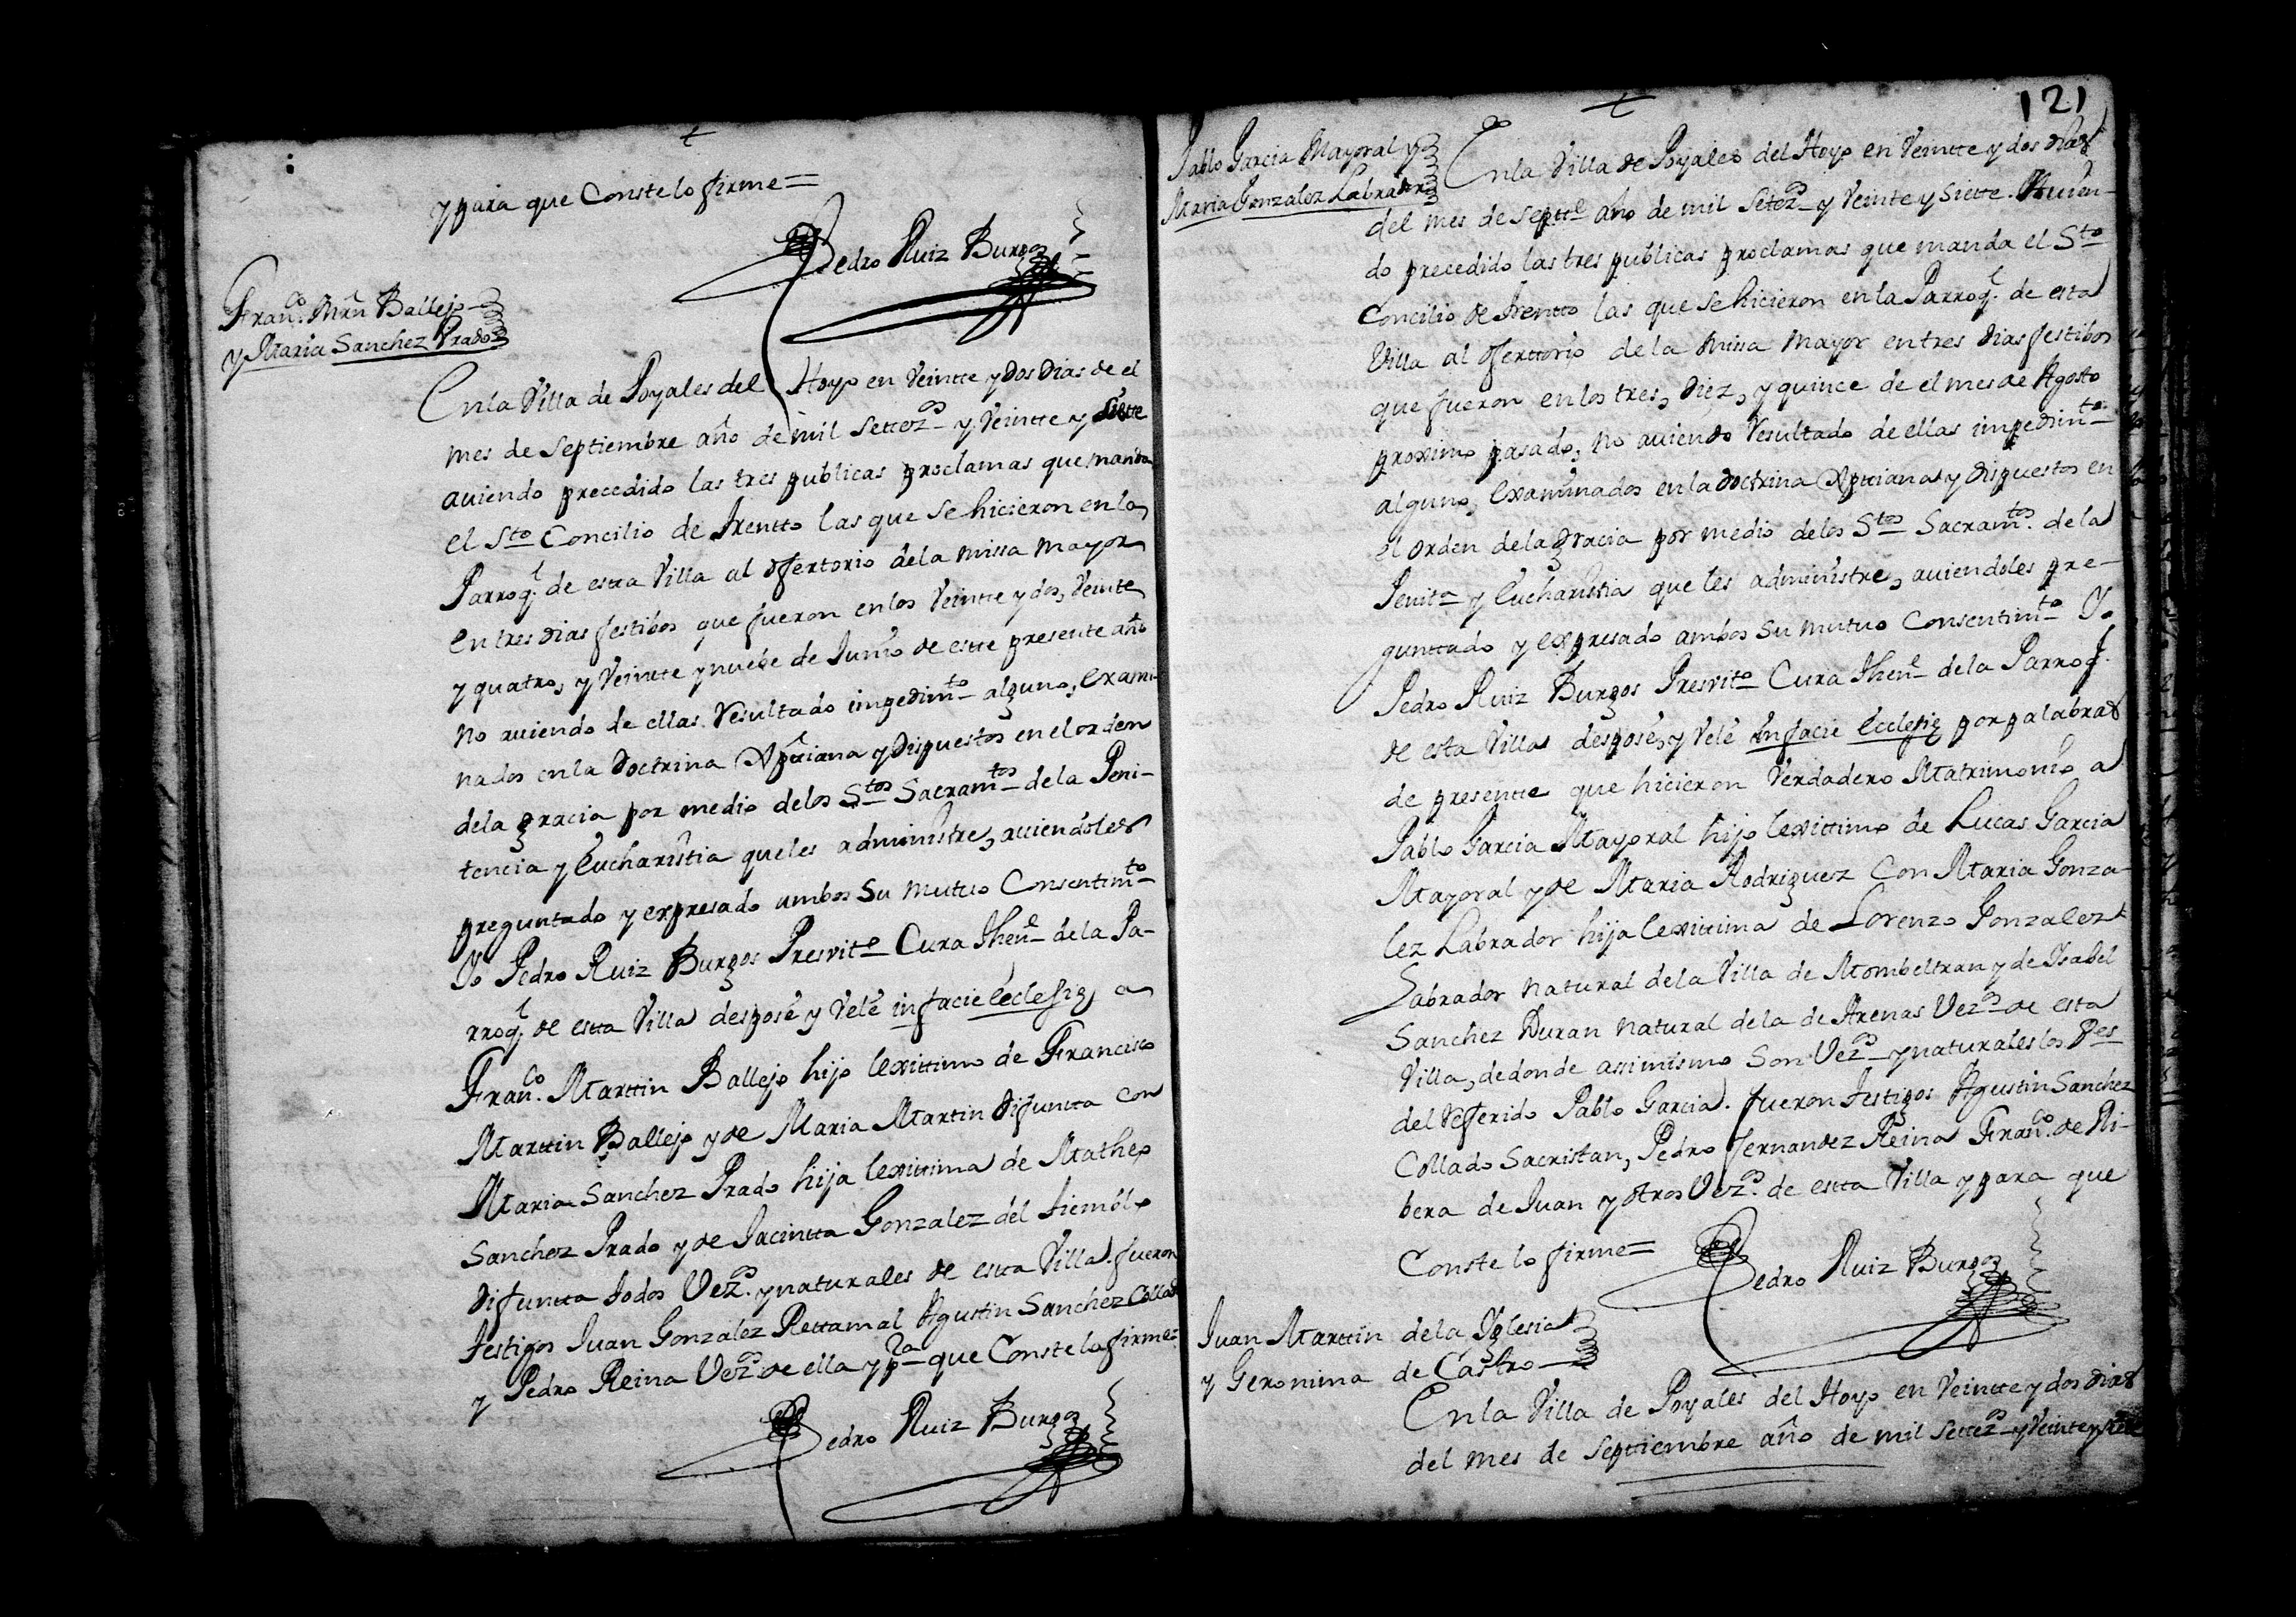 y para que Conste lo firme=
Pedro Ruiz Burgos
Franco. Mrn Ballejo
y Maria Sanchez Prado
En la Villa de Poyales del Hoyo en Veintte y dos dias de el
mes de Septiembre año de mil Settezos y Veintte y Siette
auiendo precedido las tres publicas proclamas que manda
el Sto Concilio de Trentto las que se hicieron en la
Parroql. de estta Villa al ofertorio de la missa mayor
en tres dias festibos que fueron en los Veintte y dos, Veinte
y quatro, y Veintte y nuebe de Junio de estte presente año
no auiendo de ellas Resultado impedimto alguno, exami-
nados en la Doctrina Xptiana y dispuestos en el orden
de la gracia por medio de los Stos Sacramtos de la Peni-
tencia y Eucharistia que les administre, auiendoles
preguntado y expresado ambos su mutuo Consentimto
Yo Pedro Ruiz Burgos Presvito Cura Thene de la Pa-
rroql. de estta Villa despose y Vele in facie ecclesię a
Franco. Marttin Ballejo hijo lexittimo de Francisco
Marttin Ballejo y de Maria Martin difuntta con
Maria Sanchez Prado hija lexittima de Matheo
Sanchez Prado y de Jacintta Gonzalez del tiemblo
difuntta todos Vezos. y naturales de estta Villa. fueron
testigos Juan Gonzalez Rettamal Agustin Sanchez Collado
y Pedro Reina Vezos de ella y pra que Conste lo firme=
Pedro Ruiz Burgos
121
Pablo Garcia Mayoral y
Maria Gonzalez Labrador
En la Villa de Poyales del Hoyo en Veintte y dos dias
del mes de Septte año de mil Setezos y Veinte y Siette. Auien-
do precedido las tres publicas proclamas que manda el Sto
Concilio de Trentto las que se hicieron en la Parroql. de esta
Villa al oferttorio de la missa mayor en tres dias festibos
que fueron en los tres, Diez, y quince de el mes de Agosto
proximo pasado, no auiendo Resultado de ellas impedimto
alguno, examinados en la doctrina Xptiana y dispuestos en
el orden de la gracia por medio de los Stos Sacramtos. de la
Penita y Eucharistia que les administre, auiendoles pre-
gunttado y expresado ambos su mutuo Consentimto Yo
Pedro Ruiz Burgos Presvito Cura Thene de la Parroql.
de esta Villa despose, y Vele in facie Ecclesię por palabras
de presentte que hicieron Verdadero Matrimonio a
Pablo Garcia Mayoral hijo lexittimo de Lucas Garcia
Mayoral y de Maria Rodriguez con Maria Gonza-
lez Labrador hija lexittima de Lorenzo Gonzalez
Labrador natural de la Villa de Mombeltran y de Isabel
Sanchez Duran natural de la de Arenas Vezos de esta
Villa, de donde assimismo son Vezos y naturales los Pes
del Referido Pablo Garcia. fueron testigos Agustin Sanchez
Collado Sacristan, Pedro Fernandez Reina Franco. de Ri-
bera de Juan y otros Vezos. de estta Villa y para que
Conste lo firme=
Pedro Ruiz Burgos
Juan Marttin de la Yglesia
y Geronima de Castro
En la Villa de Poyales del Hoyo en Veintte y dos dias
del mes de Septtiembre año de mil Settezos y Veinte y siete